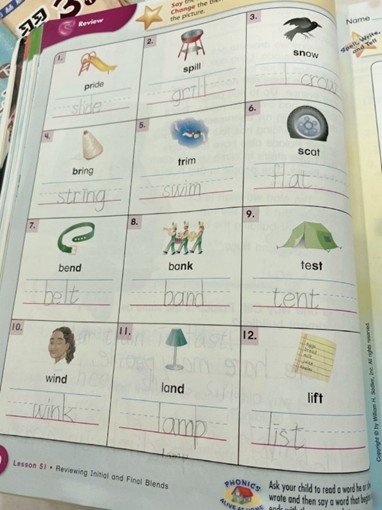 Review
Say the
Change the
the picture.
Name
Spell, Write,
and Tell
1.
pride
slide
2.
spill
grill
3.
snow
crow
4.
bring
string
5.
trim
swim
6.
scat
flat
7.
bend
belt
8.
bank
band
9.
test
tent
10.
wind
wink
11.
land
lamp
12.
lift
list
Lesson 51 • Reviewing Initial and Final Blends
PHONICS
ALIVE AT HOME
Ask your child to read a word he or
wrote and then say a word that
Copyright © by William H. Sadlier, Inc. All rights reserved.